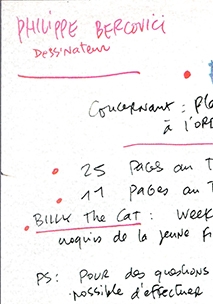 PHILIPPE BERCOVICI
Dessinateur
Concernant :
à l'
25 pages au
11 pages au
BILLY The CAT :
croquis de la jeune
PS: Pour des questions
possible d'effectuer